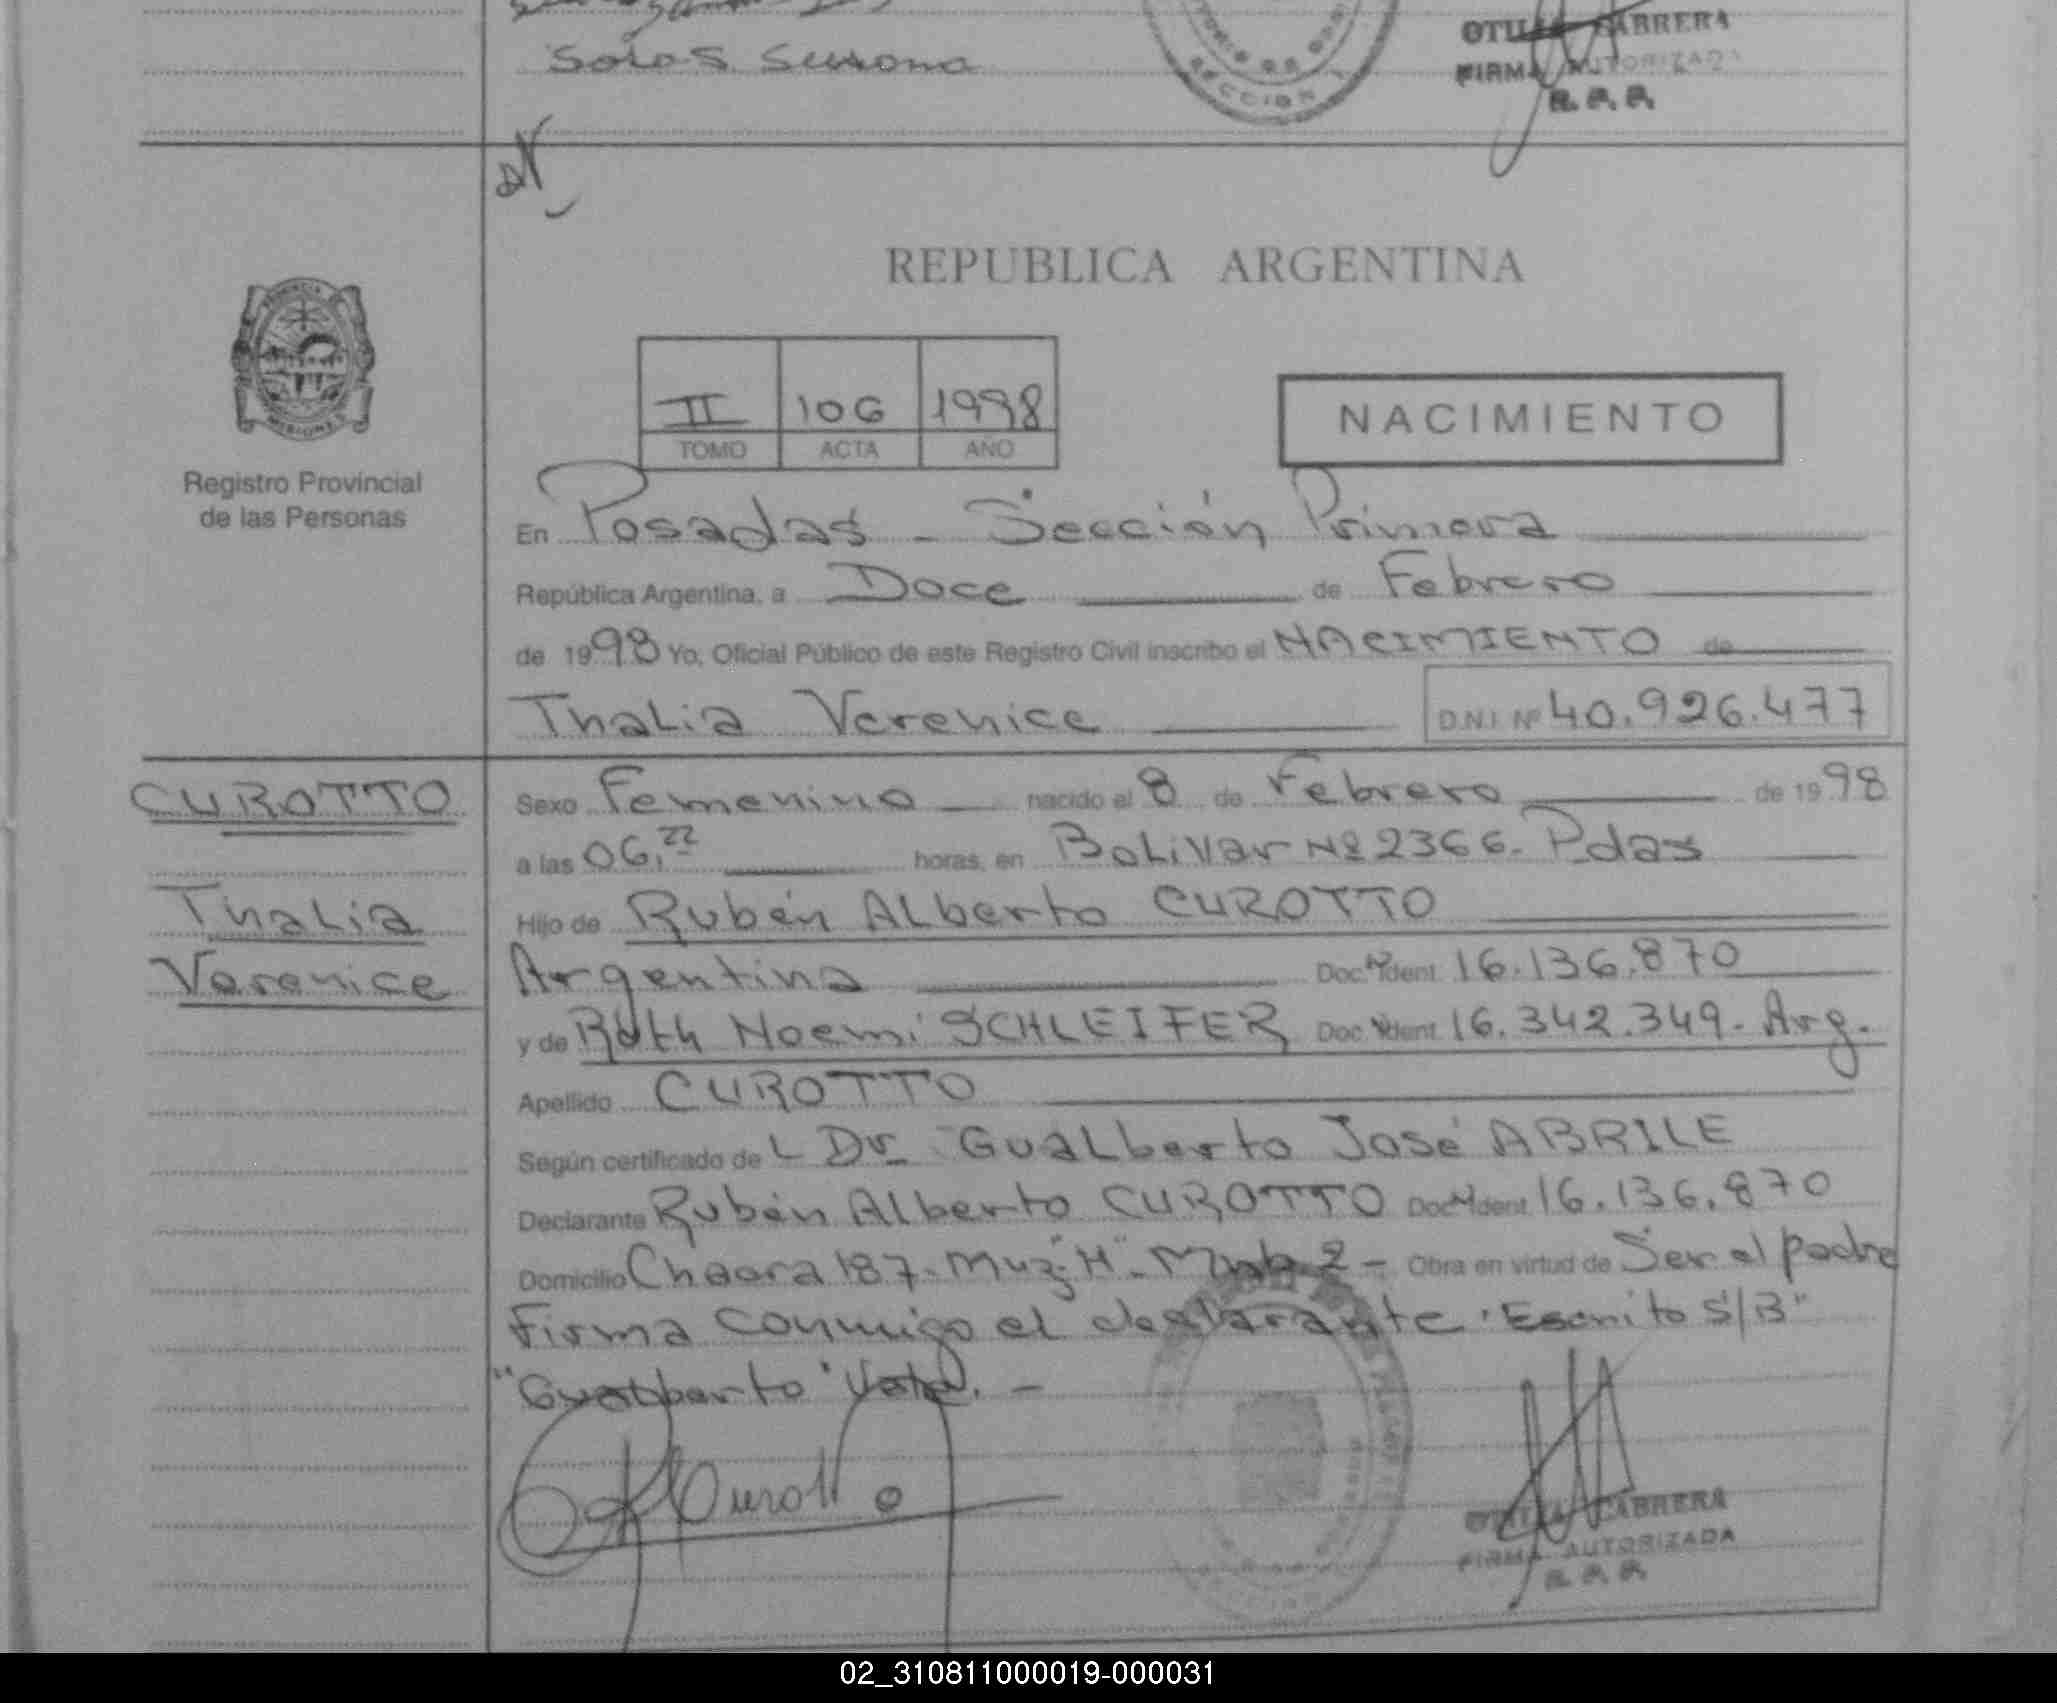 Solas Susana
OTILIA CABRERA
FIRMA AUTORIZADA
R. P. P.
SECCION 1
REPUBLICA ARGENTINA
PROVINCIA
MISIONES
Registro Provincial
de las Personas
II 106 1998
TOMO ACTA AÑO
NACIMIENTO
En Posadas - Sección Primera
República Argentina, a Doce de Febrero
de 1998 Yo, Oficial Público de este Registro Civil inscribo el NACIMIENTO de
Thalia Verenice D.N.I. Nº 40.926.477
CUROTTO
Thalia
Verenice
Sexo Femenino nacido el 8 de Febrero de 1998
a las 06,22 horas, en Bolivar Nº 2366- Pdas
Hijo de Rubén Alberto CUROTTO
Argentina Doc. Ident. 16.136.870
y de Ruth Noemi SCHLEIFER Doc. Ident. 16.342.349- Arg.
Apellido CUROTTO
Según certificado de L Dr Gualberto José ABRILE
Declarante Rubén Alberto CUROTTO Doc. Ident. 16.136.870
Domicilio Chacra 187- Mnz "H"- Mnb 2 - Obra en virtud de Ser el padre
Firma conmigo el declarante "Escrito S/B"
"Gualberto" Vale. -
Curotto
OTILIA CABRERA
FIRMA AUTORIZADA
R. P. P.
02_310811000019-000031